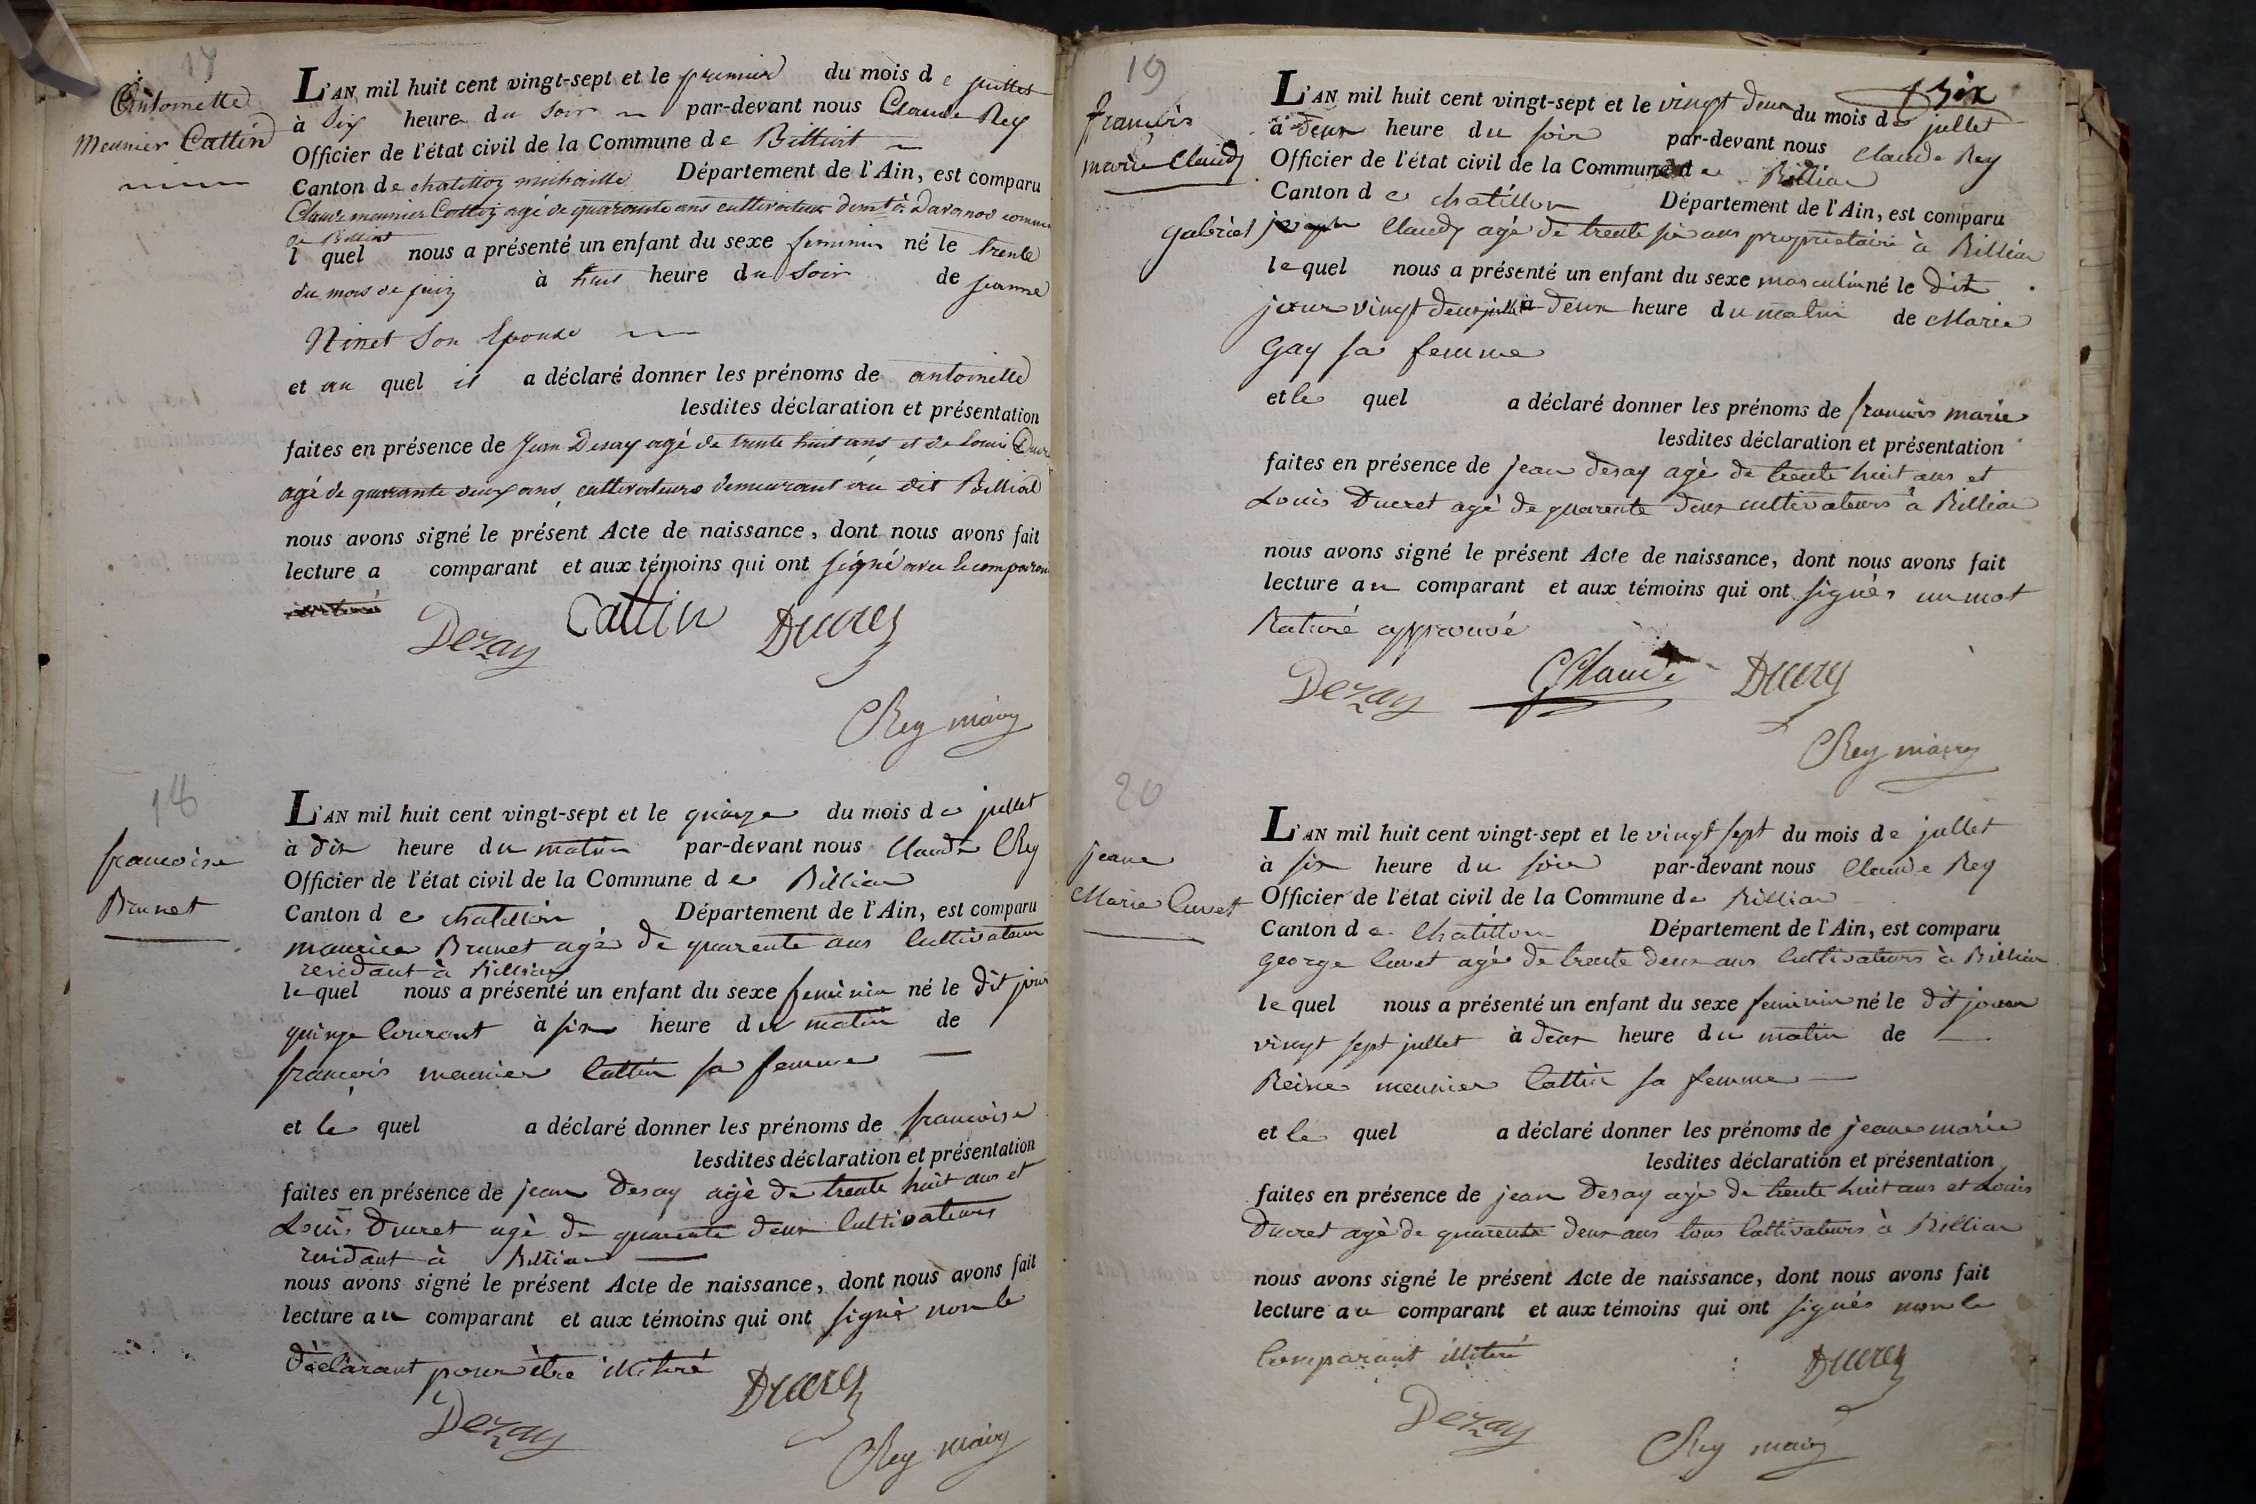 17
Antoinette
Meunier Cattin
L'AN mil huit cent vingt-sept et le premier du mois de juillet
à Six heure du Soir par-devant nous Claude Rey
Officier de l'état civil de la Commune de Billiat
Canton de chatillon michaille Département de l'Ain, est comparu
Claude meunier Cattin agé de quarante ans cultivateur demt à Davanod commune
de Billiat
l quel nous a présenté un enfant du sexe feminin né le trente
du mois de juin à huit heure du Soir de jeanne
Ninet Son Epouse
et au quel il a déclaré donner les prénoms de antoinette
lesdites déclaration et présentation
faites en présence de Jean Desay agé de trente huit ans et de Louis Ducret
agé de quarante deux ans, cultivateurs demeurant au dit Billiat
nous avons signé le présent Acte de naissance, dont nous avons fait
lecture a comparant et aux témoins qui ont signé avec le comparant
Dezay Cattin Ducret
Rey maire
18
francoise
Brunet
L'AN mil huit cent vingt-sept et le quinze du mois de jullet
à dix heure du matin par-devant nous Claude Rey
Officier de l'état civil de la Commune de Billiat
Canton de chatillon Département de l'Ain, est comparu
maurice Brunet agé de quarente ans Cultivateur
residant à Billiat
le quel nous a présenté un enfant du sexe feminin né le dit jour
quinze Courant à six heure du matin de
francois meunier Cattin sa femme
et le quel a déclaré donner les prénoms de francoise
lesdites déclaration et présentation
faites en présence de jean Desay agè de trente huit ans et
Louis Ducret agè de quarente deux Cultivateurs
residant à Billiat
nous avons signé le présent Acte de naissance, dont nous avons fait
lecture au comparant et aux témoins qui ont signè non le
Déclarant pour être illitéré
Dezay Ducret
Rey maire
19
six
francois
marie Claudy
L'AN mil huit cent vingt-sept et le vingt deux du mois de jullet
à deux heure du soir par-devant nous Claude Rey
Officier de l'état civil de la Commune de Billiat
Canton de chatillon Département de l'Ain, est comparu
gabriel joseph Claudy agé de trente six ans proprietaire à Billiat
le quel nous a présenté un enfant du sexe masculin né le dit
jour vingt deux jullet à deux heure du matin de Marie
Gay sa femme
et le quel a déclaré donner les prénoms de francois marie
lesdites déclaration et présentation
faites en présence de jean desay agè de trente huit ans et
Louis Ducret agè de quarente deux cultivateurs à Billiat
nous avons signé le présent Acte de naissance, dont nous avons fait
lecture au comparant et aux témoins qui ont signés un mot
Raturé approuvé
Dezay Claude Ducret
Rey maire
20
jeane
Marie Cuvet
L'AN mil huit cent vingt-sept et le vingt sept du mois de jullet
à six heure du soir par-devant nous Claude Rey
Officier de l'état civil de la Commune de Billiat
Canton de Chatillon Département de l'Ain, est comparu
George Cuvet agé de trente deux ans Cultivateurs à Billiat
le quel nous a présenté un enfant du sexe feminin né le dit jour
vingt sept jullet à deux heure du matin de
Reine meunier Cattin sa femme
et le quel a déclaré donner les prénoms de jeane marie
lesdites déclaration et présentation
faites en présence de jean Desay agé de trente huit ans et Louis
Ducret agè de quarente deux ans tous Cultivateurs à Billiat
nous avons signé le présent Acte de naissance, dont nous avons fait
lecture au comparant et aux témoins qui ont signés non le
Comparant illitéré
Dezay Ducret
Rey maire